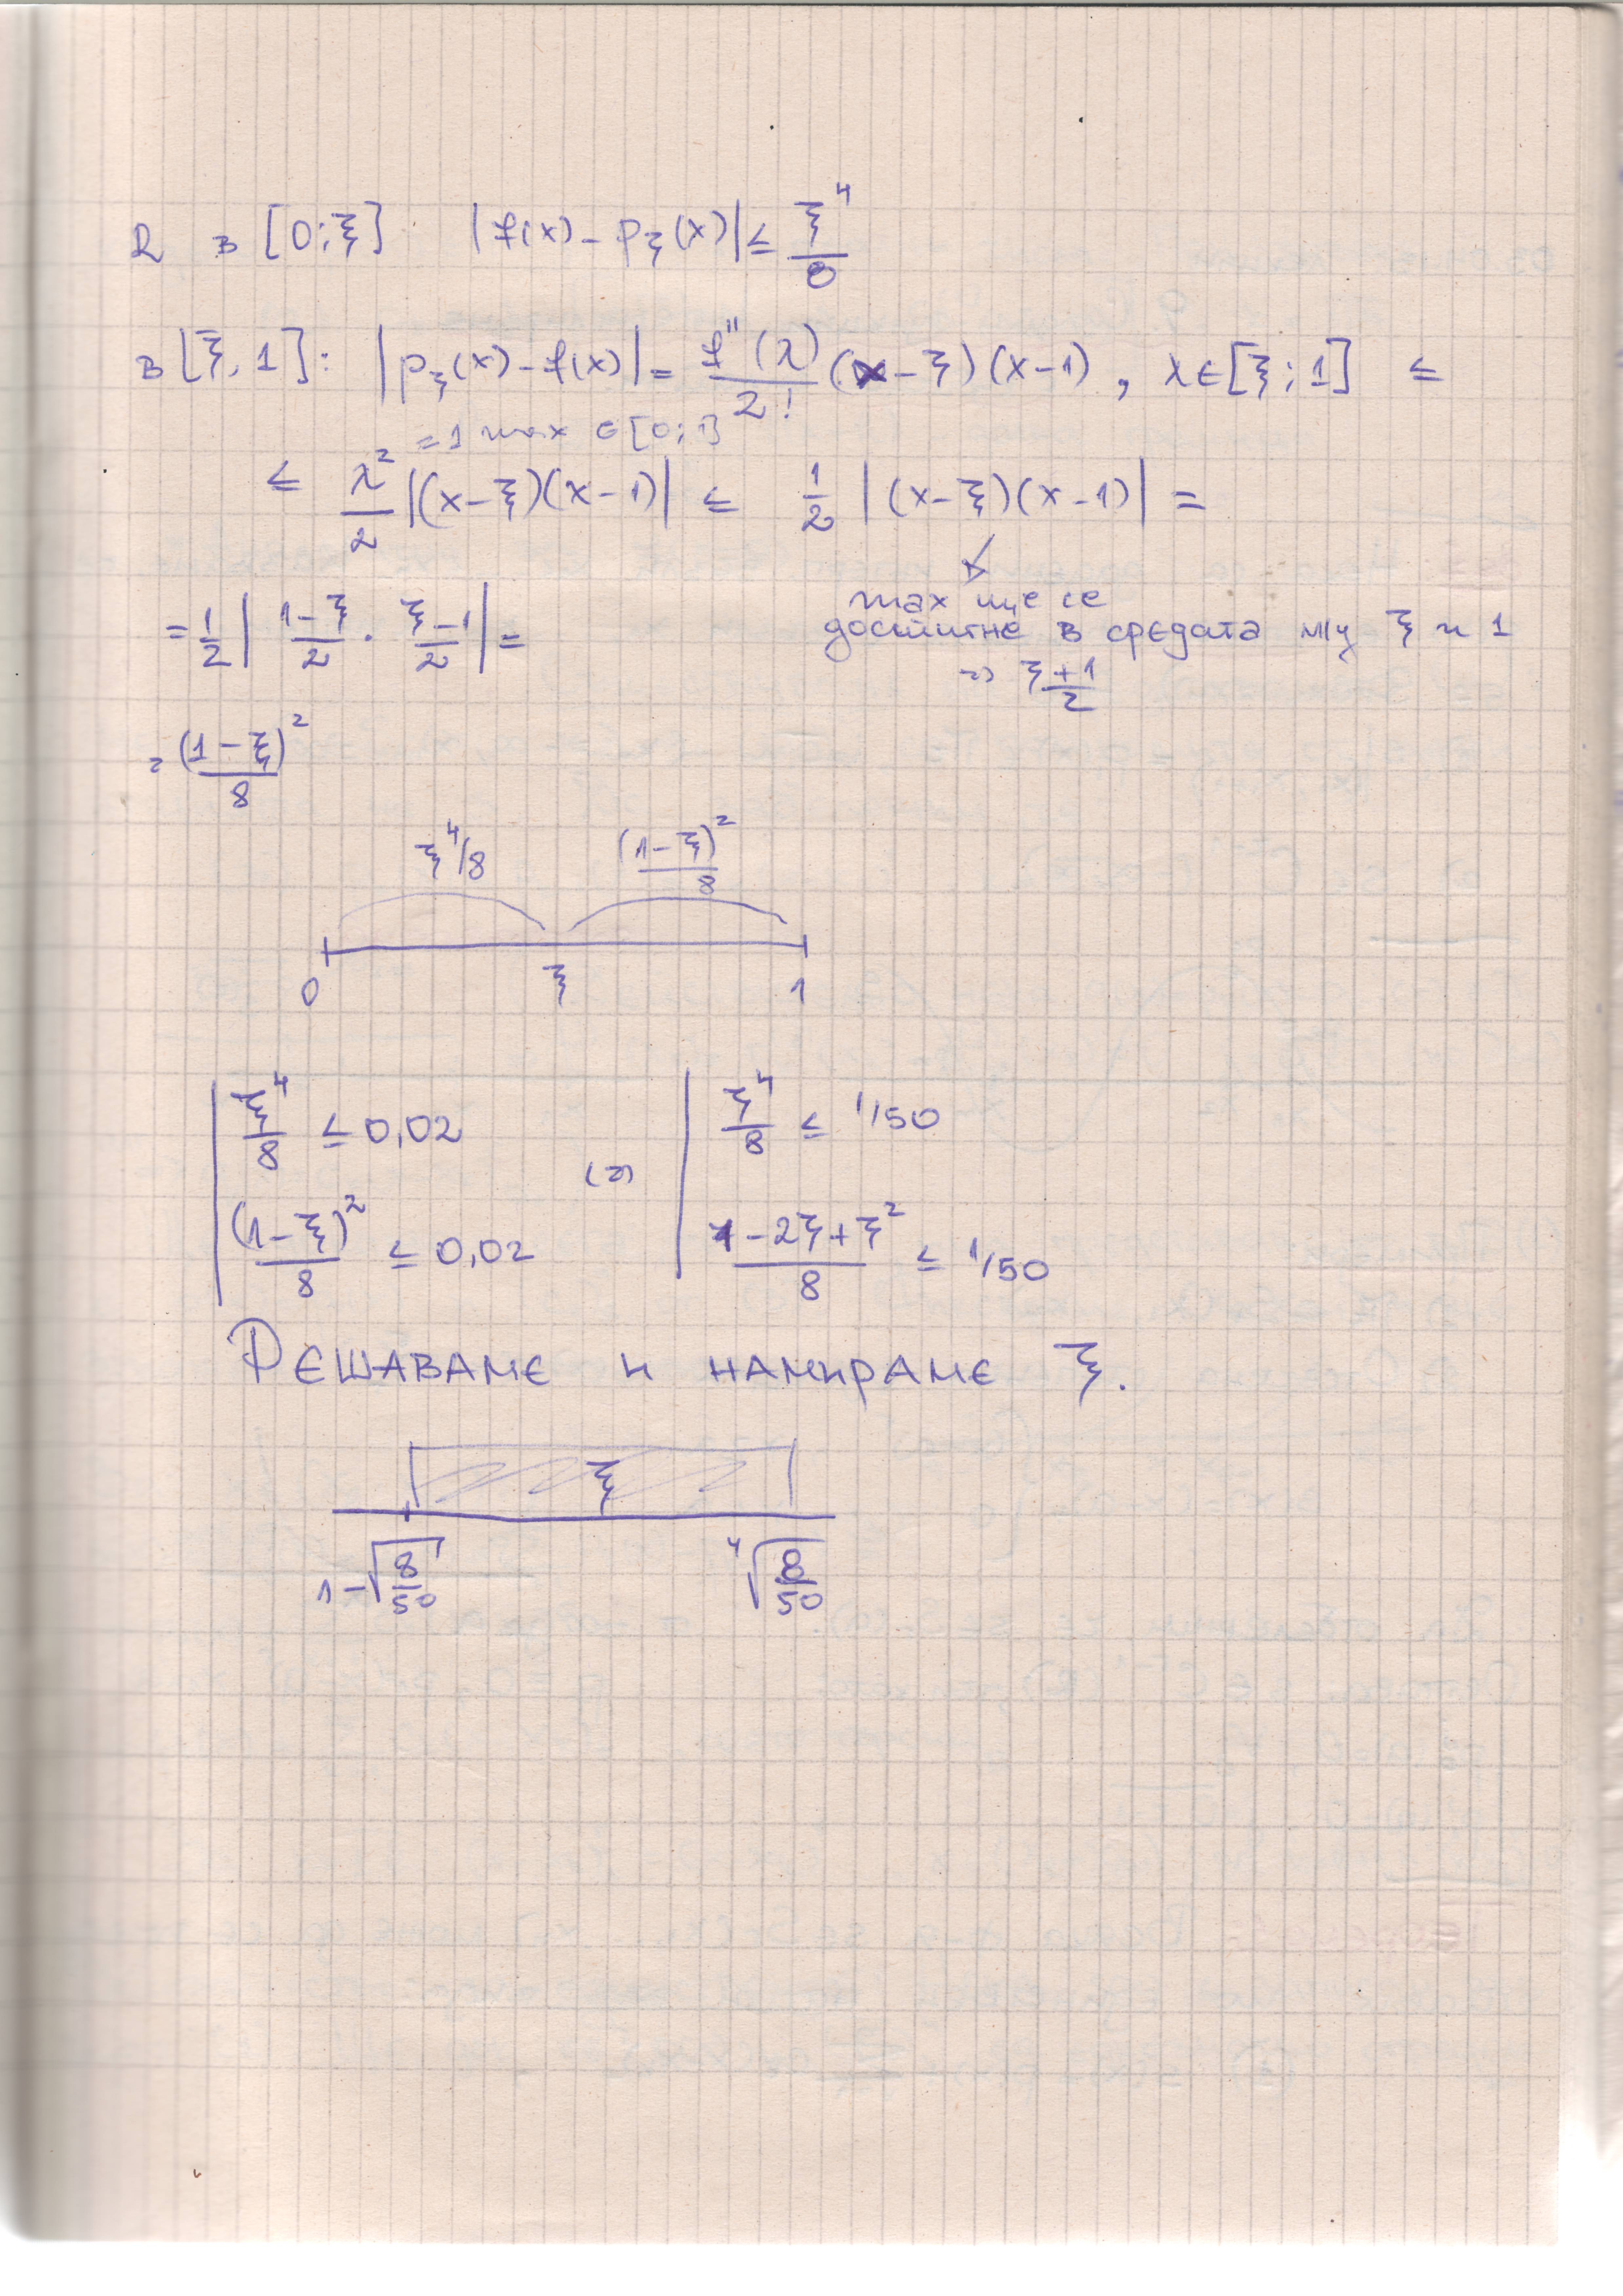 в [0;ξ] |f(x) - pξ(x)| ≤ ξ⁴/8
в [ξ, 1]: |pξ(x) - f(x)| = f''(λ)/2! (x-ξ)(x-1), λ∈[ξ;1] ≤
=1 max ∈[0;1]
≤ λ²/2 |(x-ξ)(x-1)| ≤ 1/2 |(x-ξ)(x-1)| =
max ще се
достигне в средата м/у ξ и 1
=> ξ+1/2
= 1/2 | 1-ξ/2 · ξ-1/2 | =
= (1-ξ)²/8
ξ⁴/8 (1-ξ)²/8
0 ξ 1
ξ⁴/8 ≤ 0,02 (=) ξ⁴/8 ≤ 1/50
(1-ξ)²/8 ≤ 0,02 1-2ξ+ξ²/8 ≤ 1/50
РЕШАВАМЕ И НАМИРАМЕ ξ.
ξ
1-√8/50 ⁴√8/50